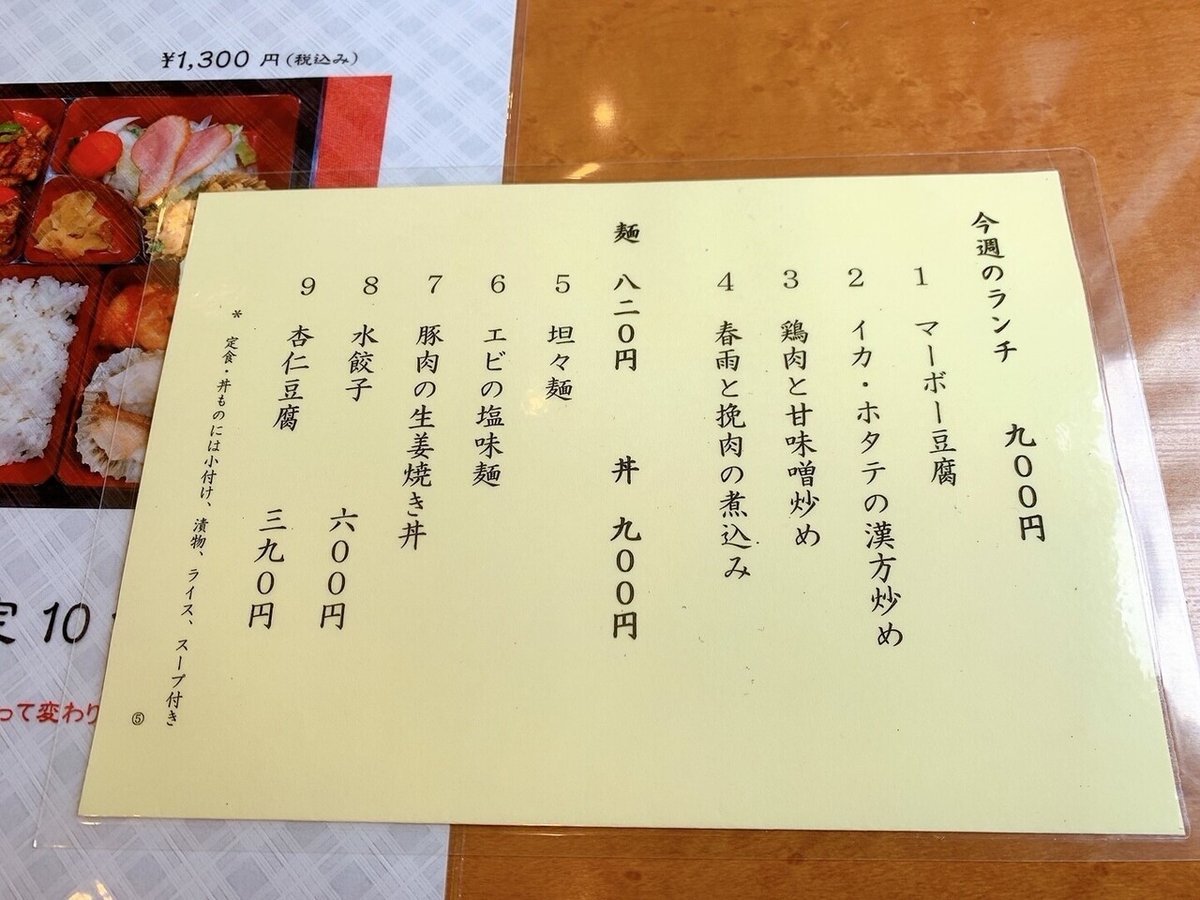 ¥1,300 円(税込み)
今週のランチ 九〇〇円
1 マーボー豆腐
2 イカ・ホタテの漢方炒め
3 鶏肉と甘味噌炒め
4 春雨と挽肉の煮込み
麺 八二〇円 丼 九〇〇円
5 坦々麺
6 エビの塩味麺
7 豚肉の生姜焼き丼
8 水餃子 六〇〇円
9 杏仁豆腐 三九〇円
* 定食・丼ものには小付け、漬物、ライス、スープ付き
⑤
定 10
って変わり